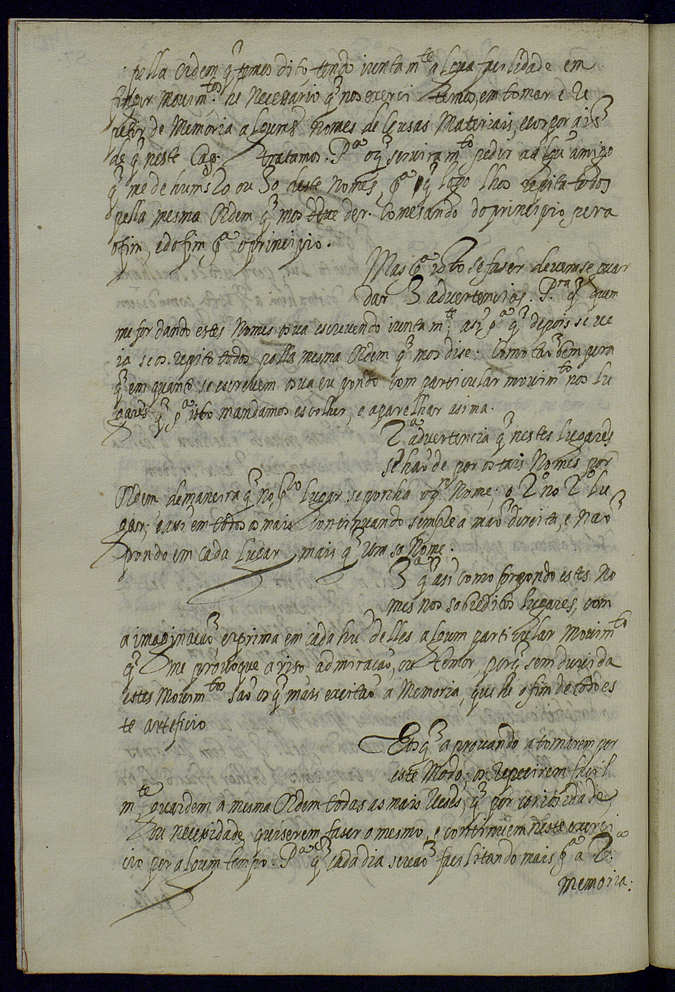 pella Ordem q̃ temos dito, tendo iuntam.te algũa facilidade em
fingir Movim.tos he Necessario q̃ nos exerci temos em tomar e Re
petir de Memoria alguns Nomes de Cousas Materiais, e corporais
de q̃ neste Cap.o tratamos. P.a o q̃ servira m.to pedir a algũ amigo
q̃ me de hum 20 ou 30 destes Nomes, p.a q̃ logo lhos repita todos
pella mesma Ordem q̃ mos deu e der. Comesando do principio, pera
o fim, e do fim p.a o principio.
Mas p.a isto se faser devemse guar
dar 3 advertencias. P.ra q̃ quem
me for dando estes Nomes os va escrevendo iuntam.te asi p.a q̃ depois se ve
ia se os repito todos pella mesma Ordem q̃ mos dise: Como tãobem pera
q̃ em quanto se escrevem os va eu pondo com particular movim.to nos lu
gares q̃ p.a isto mandamos escolher, e aparelhar asima.
2.a advertencia q̃ nestes lugares
se hão de por os tais Nomes por
Ordem de maneira q̃ no p.ro lugar se ponha o p.ro Nome: o 2.o no 2.o lu
gar; e assi em todos os mais Continuando sempre a mão direita, e Não
pondo em cada lugar mais q̃ hum so Nome.
3.a q̃ asi como for pondo estes No
mes nos sobreditos lugares, com
a imaginação exprima em cada hũ delles algum particular Movim.to
q̃ me provoque a riso, admiração, ou temor, porq̃ sem duvida
estes Movim.tos são os q̃ mais excitão a Memoria, que he o fim de todo es
te arteficio
E os q̃ aprovando a tomarem por
este Modo; os Repetirem facil
m.te guardem a mesma Ordem todas as mais Veses, q̃ por curiosidade,
ou necesidade, quiserem faser o mesmo, e continuem neste exerci
cio por algum tempo. P.a q̃ cada dia se vão facilitando mais p.a a 2.a
Memoria: